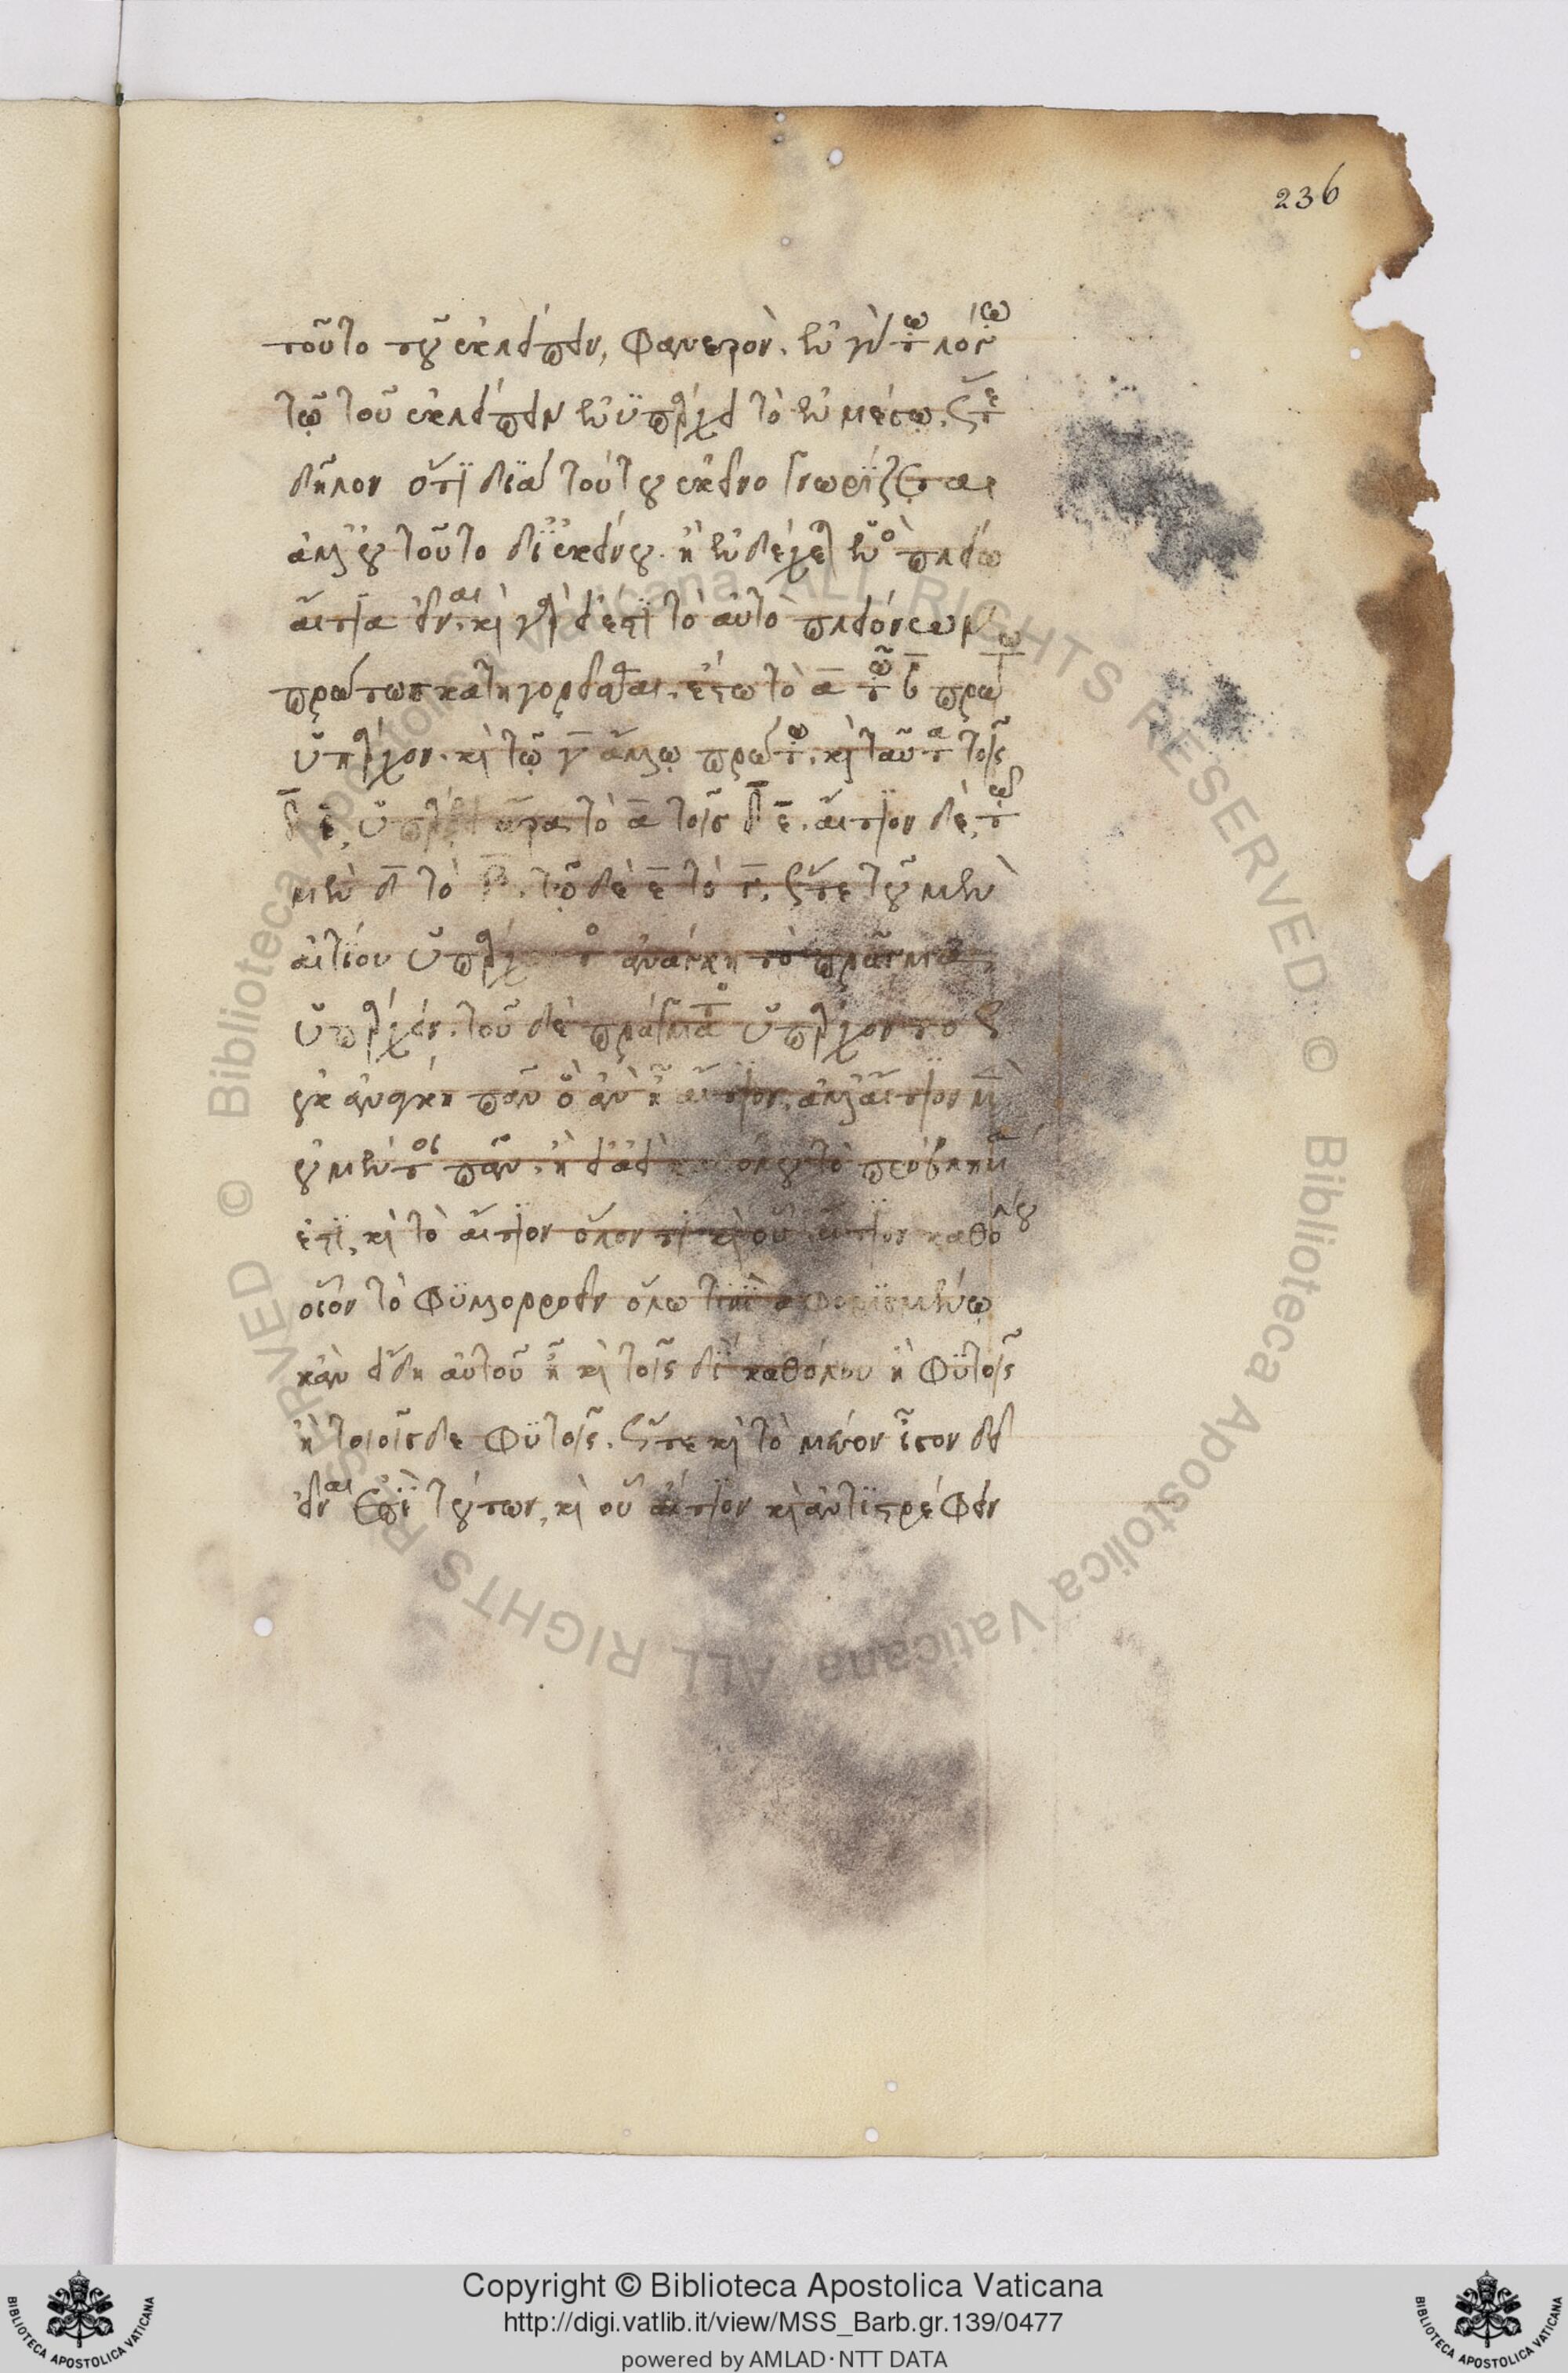 236
τοῦτο τοῦ ἐκλείπειν, φανερόν. ἐν γὰρ τῷ λόγῳ
τῷ τοῦ ἐκλείπειν ἐνυπάρχει τὸ ἐν μέσῳ. ὥστε
δῆλον ὅτι διὰ τούτου ἐκεῖνο γνωρίζεται
ἀλλ' οὐ τοῦτο δι' ἐκείνου. ἢ ἐνδέχεται ἑνὸς πλείω
αἴτια εἶναι. καὶ γὰρ εἰ ἔστι τὸ αὐτὸ πλειόνων
πρώτως κατηγορεῖσθαι. ἔστω τὸ α τῷ β πρώτῳ
ὑπάρχον. καὶ τῷ γ ἄλλῳ πρώτῳ. καὶ ταῦτα τοῖς
δ ε, ὑπάρξει ἄρα τὸ α τοῖς δ ε. αἴτιον δὲ, τῷ
μὲν δ τὸ β. τῷ δὲ ε τὸ γ. ὥστε τοῦ μὲν
αἰτίου ὑπάρχοντος ἀνάγκη τὸ πρᾶγμα,
ὑπάρχειν. τοῦ δὲ πράγματος ὑπάρχοντος
οὐκ ἀνάγκη πᾶν ὃ ἂν ᾖ αἴτιον. ἀλλ' αἴτιον μὲν
οὐ μέντοι πᾶν. ἢ εἰ ἀεὶ καθόλου τὸ πρόβλημά
ἐστι, καὶ τὸ αἴτιον ὅλον τι καὶ οὗ αἴτιον καθόλου
οἷον τὸ φυλλορροεῖν ὅλῳ τινὶ ἀφωρισμένῳ
κἂν εἴδη αὐτοῦ ᾖ καὶ τοῖς δὶ καθόλου ἢ φυτοῖς
ἢ τοιοῖσδε φυτοῖς. ὥστε καὶ τὸ μέσον ἴσον δεῖ
εἶναι ἐπὶ τούτων, καὶ οὗ αἴτιον καὶ ἀντιστρέφειν
Copyright © Biblioteca Apostolica Vaticana
http://digi.vatlib.it/view/MSS_Barb.gr.139/0477
powered by AMLAD·NTT DATA
BIBLIOTECA APOSTOLICA VATICANA
BIBLIOTECA APOSTOLICA VATICANA
© Biblioteca Apostolica Vaticana ALL RIGHTS RESERVED
© Biblioteca Apostolica Vaticana ALL RIGHTS RESERVED